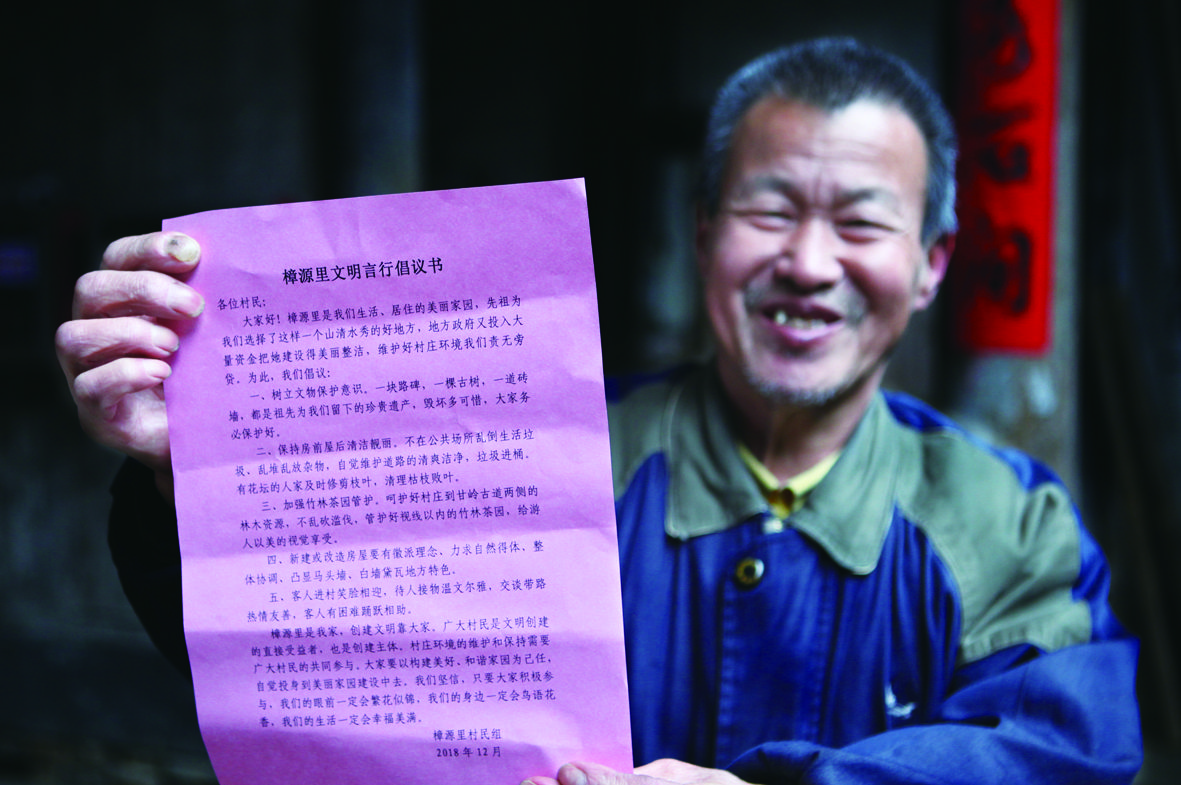 樟源里文明言行倡议书
各位村民：
大家好！樟源里是我们生活、居住的美丽家园，先祖为
我们选择了这样一个山清水秀的好地方，地方政府又投入大
量资金把她建设得美丽整洁，维护好村庄环境我们责无旁
贷。为此，我们倡议：
一、树立文物保护意识。一块路碑，一棵古树，一道砖
墙，都是祖先为我们留下的珍贵遗产，毁坏多可惜，大家务
必保护好。
二、保持房前屋后清洁靓丽。不在公共场所乱倒生活垃
圾、乱堆乱放杂物，自觉维护道路的清爽洁净，垃圾进桶。
有花坛的人家及时修剪枝叶，清理枯枝败叶。
三、加强竹林茶园管护。呵护好村庄到甘岭古道两侧的
林木资源，不乱砍滥伐，管护好视线以内的竹林茶园，给游
人以美的视觉享受。
四、新建或改造房屋要有徽派理念，力求自然得体，整
体协调、凸显马头墙、白墙黛瓦地方特色。
五、客人进村笑脸相迎，待人接物温文尔雅，交谈带路
热情友善，客人有困难踊跃相助。
樟源里是我家，创建文明靠大家。广大村民是文明创建
的直接受益者，也是创建主体。村庄环境的维护和保持需要
广大村民的共同参与。大家要以构建美好、和谐家园为己任，
自觉投身到美丽家园建设中去。我们坚信，只要大家积极参
与，我们的眼前一定会繁花似锦，我们的身边一定会鸟语花
香，我们的生活一定会幸福美满。
樟源里村民组
2018 年 12 月